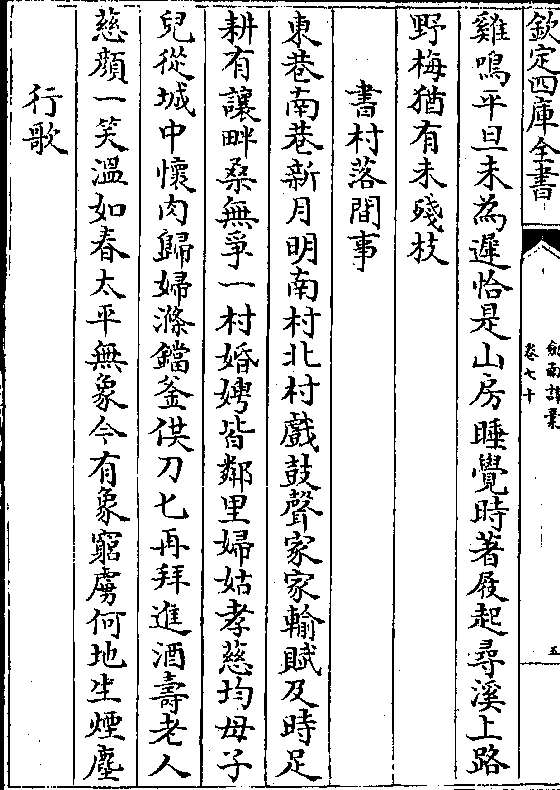 欽定四庫全書
劍南詩藁
卷七十
五
雞鳴平旦未為遲恰是山房睡覺時著屐起尋溪上路
野梅猶有未殘枝
書村落間事
東巷南巷新月明南村北村戲鼓聲家家輸賦及時足
耕有讓畔桑無爭一村婚娉皆鄰里婦姑孝慈均母子
兒從城中懷肉歸婦滌鐺釜供刀匕再拜進酒壽老人
慈顔一笑溫如春太平無象今有象窮虜何地生煙塵
行歌